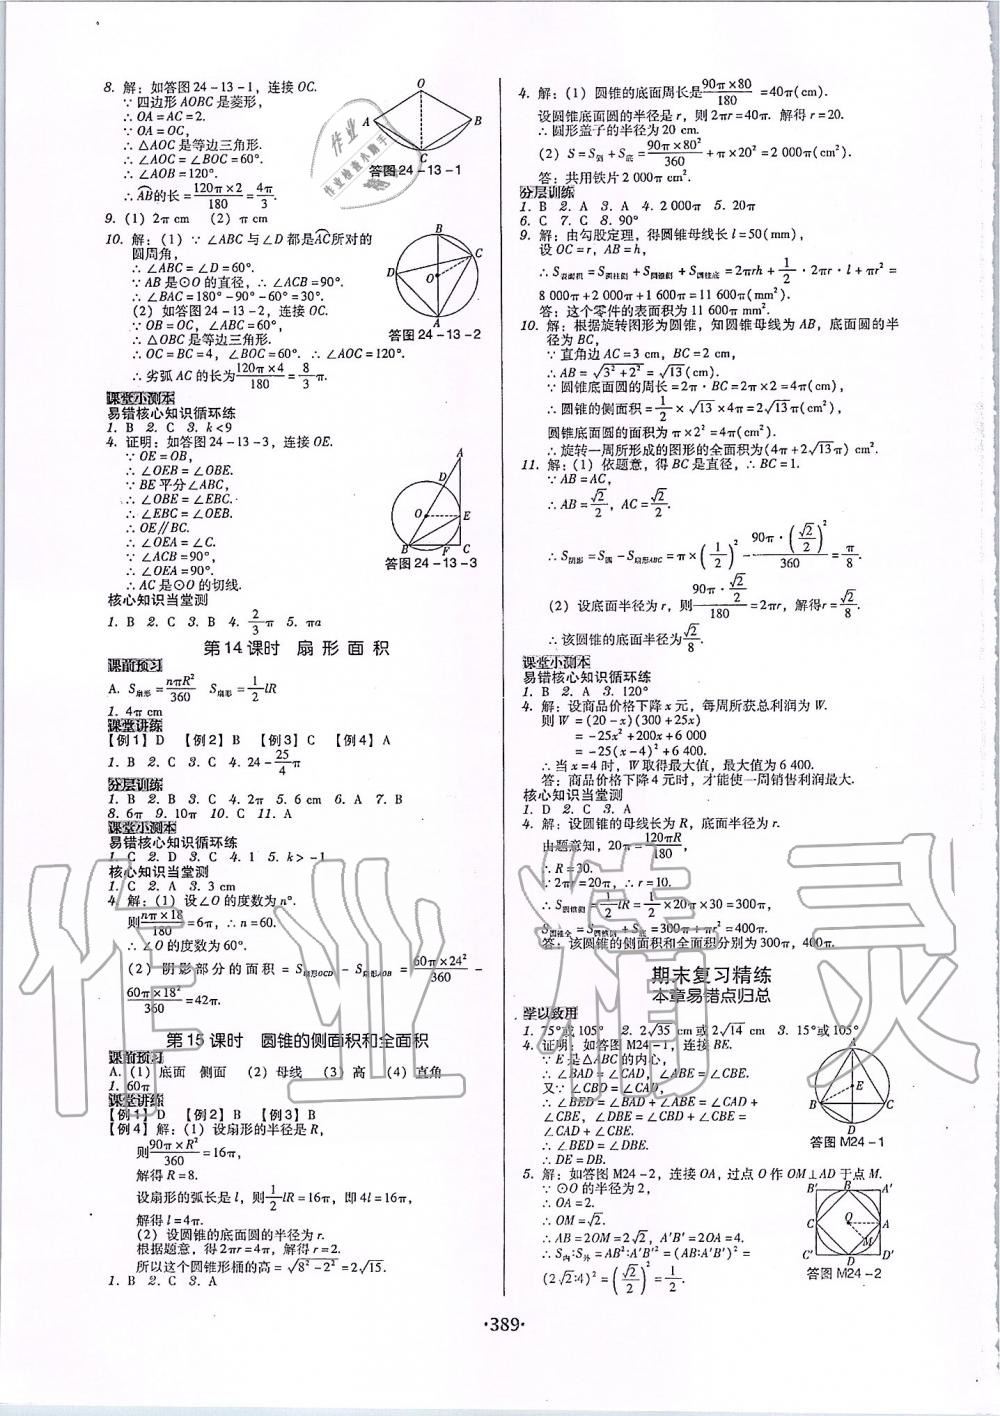 8. 解：如答图24-13-1，连接OC.
∵四边形AOBC是菱形，
∴OA=AC=2.
∵OA=OC，
∴△AOC是等边三角形.
∴∠AOC=∠BOC=60°.
∴∠AOB=120°.
∴AB的长=120π×2/180=4π/3.
答图24-13-1
9. (1) 2π cm (2) π cm
10. 解：(1) ∵∠ABC与∠D都是AC所对的
圆周角，
∴∠ABC=∠D=60°.
∵AB是⊙O的直径，∴∠ACB=90°.
∴∠BAC=180°-90°-60°=30°.
(2) 如答图24-13-2，连接OC.
∵OB=OC，∠ABC=60°，
∴△OBC是等边三角形.
∴OC=BC=4，∠BOC=60°. ∴∠AOC=120°.
∴劣弧AC的长为120π×4/180=8/3π.
答图24-13-2
课堂小测本
易错核心知识循环练
1. B 2. C 3. k<9
4. 证明：如答图24-13-3，连接OE.
∵OE=OB，
∴∠OEB=∠OBE.
∵BE平分∠ABC，
∴∠OBE=∠EBC.
∴∠EBC=∠OEB.
∴OE∥BC.
∴∠OEA=∠C.
∵∠ACB=90°，
∴∠OEA=90°.
∴AC是⊙O的切线.
答图24-13-3
核心知识当堂测
1. B 2. C 3. B 4. 2/3π 5. πa
第14课时 扇形面积
课前预习
A. S扇形=nπR²/360 S扇形=1/2lR
1. 4π cm
课堂讲练
【例1】D 【例2】B 【例3】C 【例4】A
1. B 2. C 3. C 4. 24-25/4π
分层训练
1. B 2. B 3. C 4. 2π 5. 6 cm 6. A 7. B
8. 6π 9. 10π 10. C 11. A
课堂小测本
易错核心知识循环练
1. C 2. D 3. C 4. 1 5. k>-1
核心知识当堂测
1. C 2. A 3. 3 cm
4. 解：(1) 设∠O的度数为n°.
则nπ×18/180=6π，∴n=60.
∴∠O的度数为60°.
(2) 阴影部分的面积=S扇形OCD-S扇形AOB=60π×24²/360-
60π×18²/360=42π.
第15课时 圆锥的侧面积和全面积
课前预习
A. (1) 底面 侧面 (2) 母线 (3) 高 (4) 直角
1. 60π
课堂讲练
【例1】D 【例2】B 【例3】B
【例4】解：(1) 设扇形的半径是R，
则90π×R²/360=16π，
解得R=8.
设扇形的弧长是l，则1/2lR=16π，即4l=16π，
解得l=4π.
(2) 设圆锥的底面圆的半径为r.
根据题意，得2πr=4π，解得r=2.
所以这个圆锥形桶的高=√8²-2²=2√15.
1. B 2. C 3. A
4. 解：(1) 圆锥的底面周长是90π×80/180=40π(cm).
设圆锥底面圆的半径是r，则2πr=40π. 解得r=20.
∴圆形盖子的半径为20 cm.
(2) S=S侧+S底=90π×80²/360+π×20²=2 000π(cm²).
答：共用铁片2 000π cm².
分层训练
1. B 2. A 3. A 4. 2 000π 5. 20π
6. C 7. C 8. 90°
9. 解：由勾股定理，得圆锥母线长l=50(mm)，
设OC=r，AB=h，
∴S表面积=S圆柱侧+S圆锥侧+S圆柱底=2πrh+1/2·2πr·l+πr²=
8 000π+2 000π+1 600π=11 600π(mm²).
答：这个零件的表面积为11 600π mm².
10. 解：根据旋转图形为圆锥，知圆锥母线为AB，底面圆的半
径为BC，
∵直角边AC=3 cm，BC=2 cm，
∴AB=√3²+2²=√13(cm).
∵圆锥底面圆的周长=2π·BC=2π×2=4π(cm)，
∴圆锥的侧面积=1/2×√13×4π=2√13π(cm²)，
圆锥底面圆的面积为π×2²=4π(cm²)，
∴旋转一周所形成的图形的全面积为(4π+2√13π) cm².
11. 解：(1) 依题意，得BC是直径，∴BC=1.
∵AB=AC，
∴AB=√2/2，AC=√2/2.
∴S阴影=S圆-S扇形ABC=π×(1/2)²-90π·(√2/2)²/360=π/8.
(2) 设底面半径为r，则90π·√2/2/180=2πr，解得r=√2/8.
∴该圆锥的底面半径为√2/8.
课堂小测本
易错核心知识循环练
1. B 2. A 3. 120°
4. 解：设商品价格下降x元，每周所获总利润为W.
则W=(20-x)(300+25x)
=-25x²+200x+6 000
=-25(x-4)²+6 400.
∴当x=4时，W取得最大值，最大值为6 400.
答：商品价格下降4元时，才能使一周销售利润最大.
核心知识当堂测
1. D 2. C 3. A
4. 解：设圆锥的母线长为R，底面半径为r.
由题意知，20π=120πR/180，
∴R=30.
∵2πr=20π，∴r=10.
∴S圆锥侧=1/2lR=1/2×20π×30=300π，
S圆锥全=S圆锥侧+S底=300π+πr²=400π.
答：该圆锥的侧面积和全面积分别为300π，400π.
期末复习精练
本章易错点归总
学以致用
1. 75°或105° 2. 2√35 cm或2√14 cm 3. 15°或105°
4. 证明：如答图M24-1，连接BE.
∵E是△ABC的内心，
∴∠BAD=∠CAD，∠ABE=∠CBE.
又∵∠CBD=∠CAD，
∴∠BED=∠BAD+∠ABE=∠CAD+
∠CBE，∠DBE=∠CBD+∠CBE=
∠CAD+∠CBE.
∴∠BED=∠DBE.
∴DE=DB.
答图M24-1
5. 解：如答图M24-2，连接OA，过点O作OM⊥AD于点M.
∵⊙O的半径为2，
∴OA=2.
∴OM=√2.
∴AB=2OM=2√2，A'B'=2OA=4.
∴S内:S外=AB²:A'B'²=(AB:A'B')²=
(2√2:4)²=(√2/2)²=1/2.
答图M24-2
·389·
作业精灵